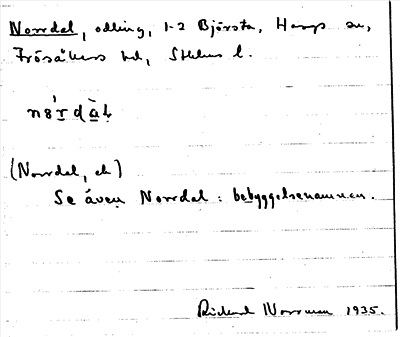 Norrdal, odling, 1-2 Björsta, Hargs sn,
Frösåkers hd, Sthlms l.
(Norrdal, ek)
Se även Norrdal: bebyggelsenamnen.
Rickard Norrman 1935.